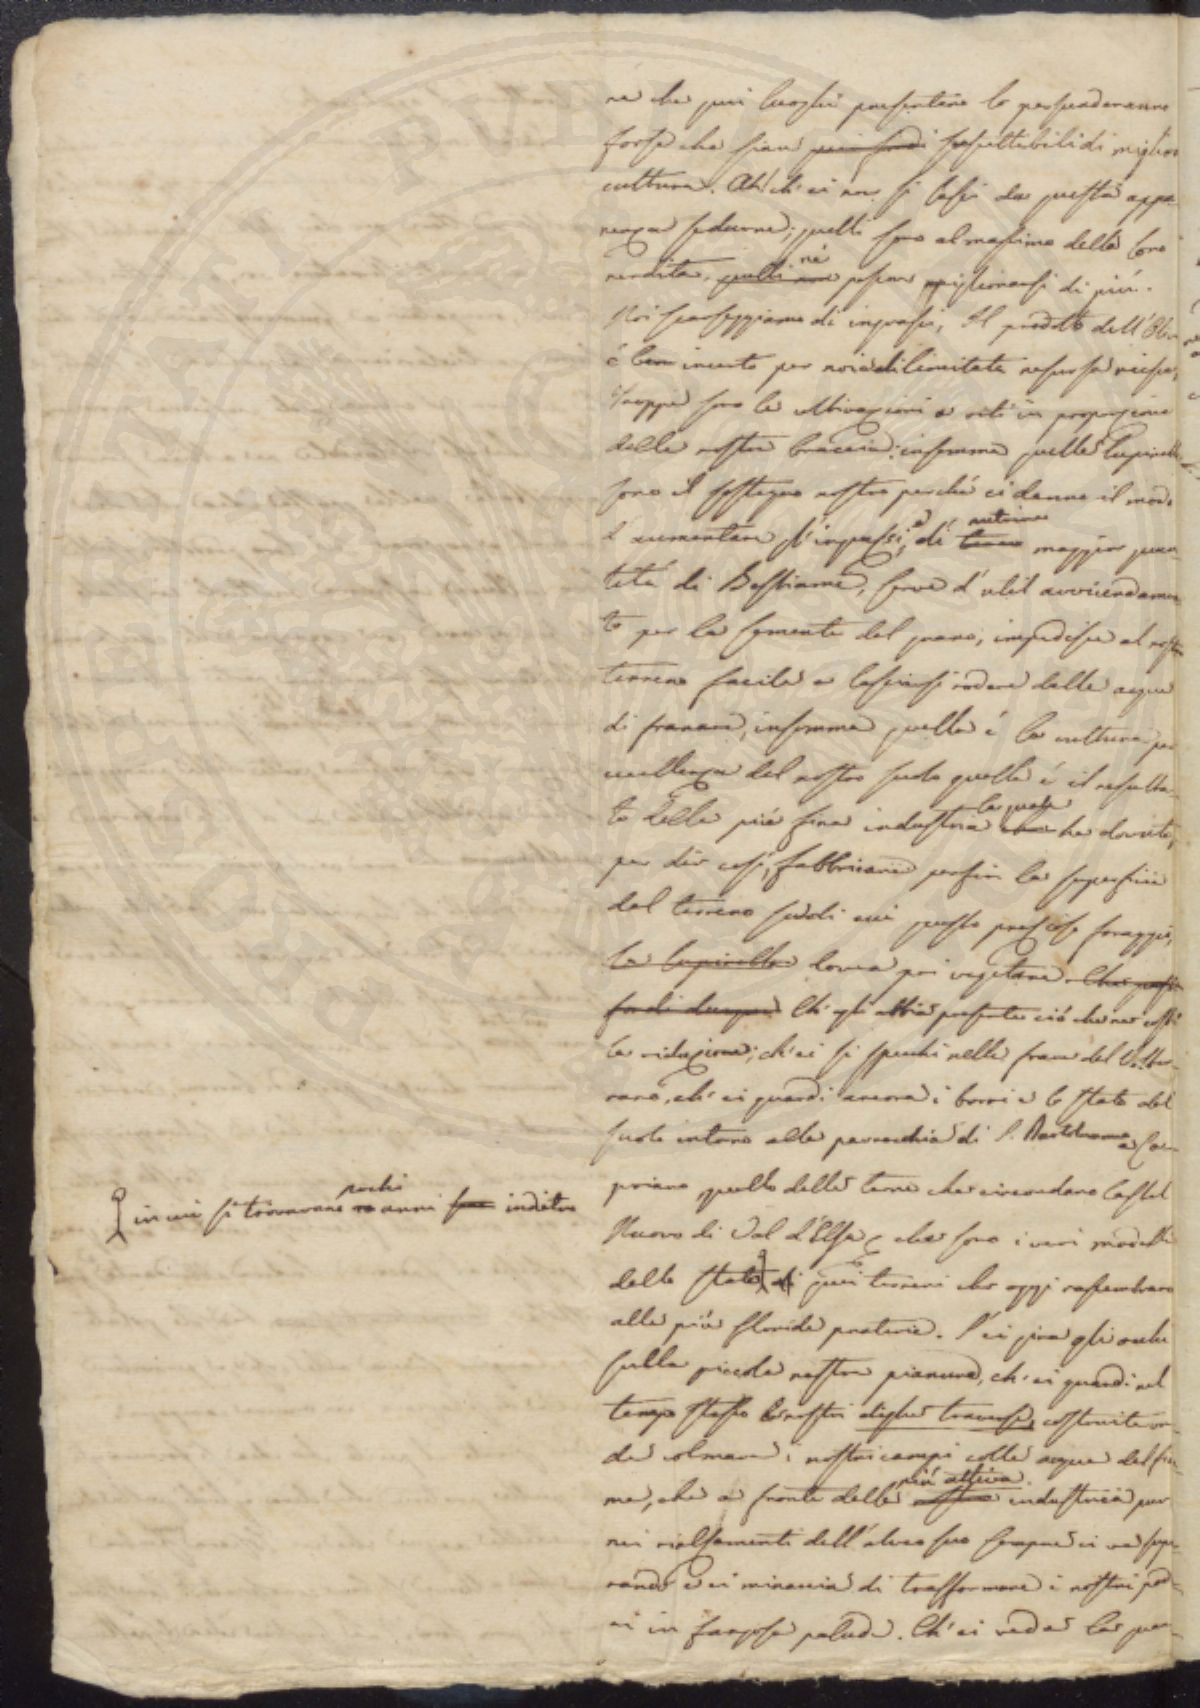 ne che quei luoghi presentano lo persuaderanno
forse che sian quei fondi suscettibili di miglior
cultura. Ah! ch'ei non si lasci da questa appa-
renza sedurre; quelli sono al massimo della loro
rendita, quelli non nè posson migliorarsi di più.
Noi scarseggiamo di ingrassi, Il prodotto dell'Olivo
è ben incerto per noi e di limitata risorsa riesce,
troppe sono le coltivazioni a viti in proporzione
delle nostre braccia: insomma quelle lupinelle
sono il sostegno nostro perchè ci danno il modo
d'aumentare gl'ingrassi, e di tener nutrire maggior quan-
tità di Bestiame, serve d'util avvicendamen-
to per la sementa del grano, impedisce al nostro
terreno facile a lasciarsi rodere dalle acque
di franare, insomma quella è la cultura per
eccellenza del nostro suolo quella è il resulta-
to della più fina industria che la quale ha dovuto,
per dir così, fabbricare perfin la superficie
del terreno su di cui questo prezioso foraggio,
la lupinella dovea poi vegetare. Che
Ch'egli abbia presente ciò che ne costi
la riduzione; ch'ei si specchi nelle frane del Volter-
rano, ch'ei guardi ancora i borri e lo stato del
suolo intorno alla parrocchia di S. Bartolomeo a Ca-
priano quello delle terre che circondano Castel
Nuovo di Val d'Elsa che sono i veri modelli
dello stato di quei terreni che oggi rassembrano
alle più floride praterie. S'ei gira gli occhi
sulla piccola nostra pianura, ch'ei guardi nel
tempo stesso le nostri dighe traverse, costruite on-
de colmare i nostri campi colle acque del fiu-
me, che a fronte della nostra più attiva industria pur
nei rialzamenti dell'alveo suo sempre ci va supe-
rando e ci minaccia di trasformare i nostri pod-
ri in fangosa palude. Ch'ei veda le
in cui si trovavano pochi anni indietro